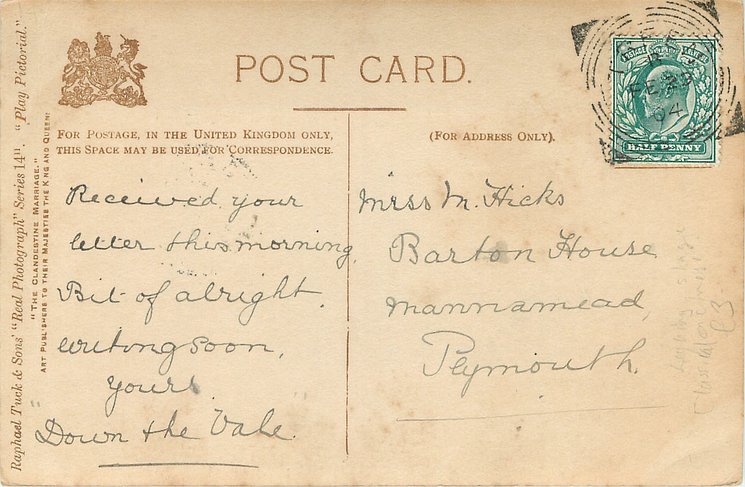 POST CARD.
FOR POSTAGE, IN THE UNITED KINGDOM ONLY,
THIS SPACE MAY BE USED FOR CORRESPONDENCE.
(FOR ADDRESS ONLY).
HALF PENNY
FE 04
Raphael Tuck & Sons' "Real Photograph" Series 1411. "Play Pictorial."
"THE CLANDESTINE MARRIAGE."
ART PUBLISHERS TO THEIR MAJESTIES THE KING AND QUEEN.
Received your
letter this morning.
Bit of alright.
writing soon,
yours.
Down the Vale.
Miss M. Hicks
Barton House
Mannamead,
Plymouth.